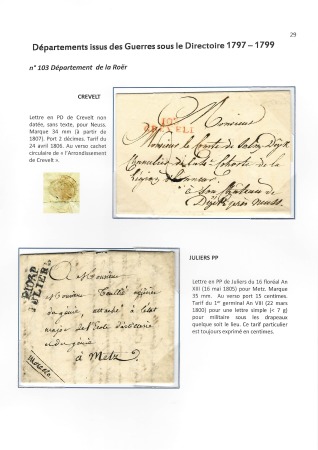 29
Départements issus des Guerres sous le Directoire 1797 – 1799
n° 103 Département de la Roër
CREVELT
Lettre en PD de Crevelt non
datée, sans texte, pour Neuss.
Marque 34 mm (à partir de
1807). Port 2 décimes. Tarif du
24 avril 1806. Au verso cachet
circulaire de « l'Arrondissement
de Crevelt ».
Monsieur
Monsieur le
de la
Légion d'honneur
à son château de
Dyck près Neuss.
JULIERS PP
Lettre en PP de Juliers du 16 floréal An
XIII (16 mai 1805) pour Metz. Marque
35 mm. Au verso port 15 centimes.
Tarif du 1er germinal An VIII (22 mars
1800) pour une lettre simple (< 7 g)
pour militaire sous les drapeaux
quelque soit le lieu. Ce tarif particulier
est toujours exprimé en centimes.
JULIERS
A Monsieur
Monsieur
major de
à Metz